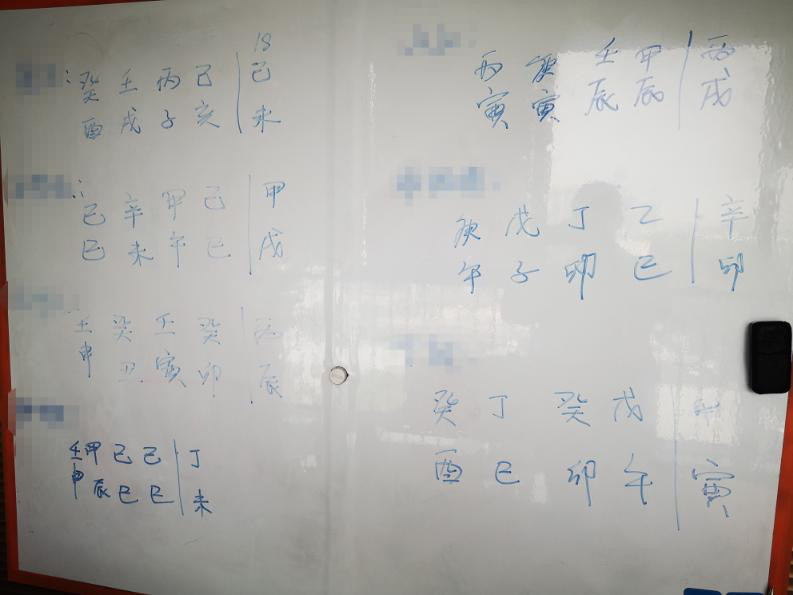 18
癸 壬 丙 己 己
酉 戌 子 亥 未
己 辛 甲 己 甲
巳 未 午 巳 戌
壬 癸 壬 癸 丙
申 丑 寅 卯 辰
壬 甲 己 己 丁
申 辰 巳 巳 未
丙 庚 壬 甲 丙
寅 寅 辰 辰 戌
庚 戊 丁 乙 辛
午 子 卯 巳 卯
癸 丁 癸 戊
酉 巳 卯 午 寅